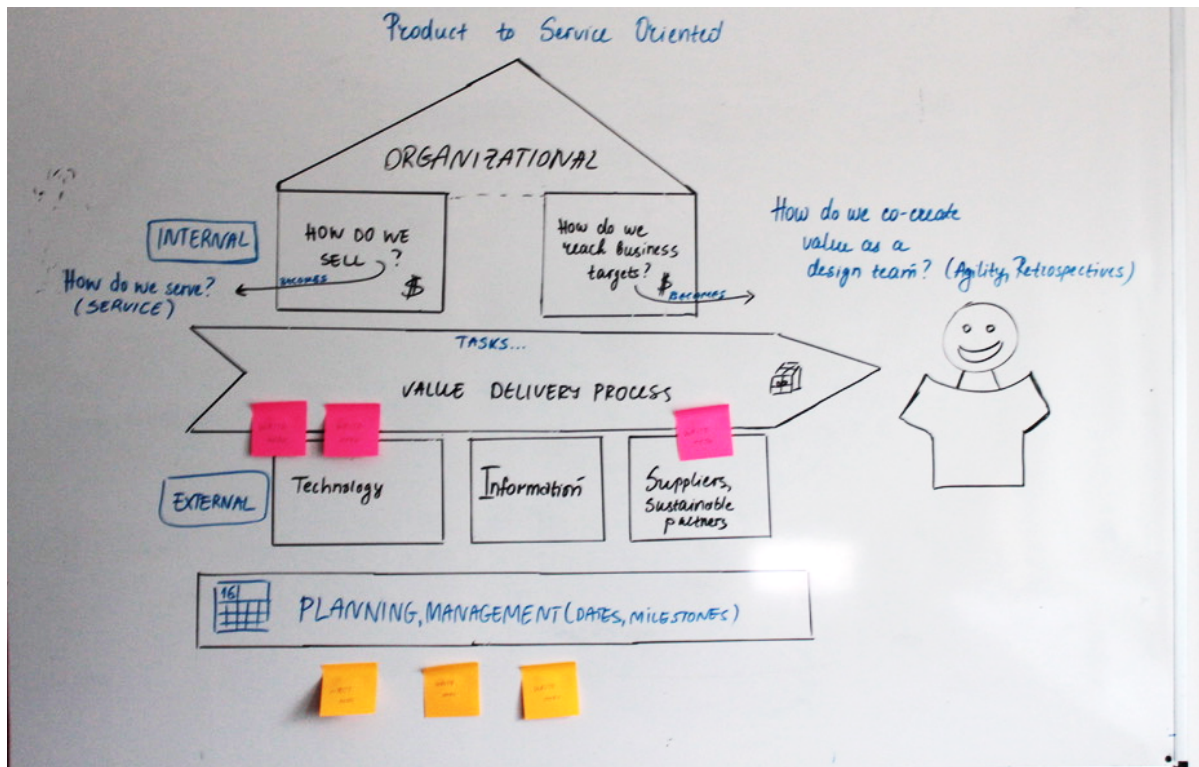 Product to Service Oriented
ORGANIZATIONAL
INTERNAL
HOW DO WE
SELL ?
$
BECOMES
How do we serve?
(SERVICE)
How do we
reach business
targets?
$
BECOMES
How do we co-create
value as a
design team? (Agility, Retrospectives)
TASKS...
VALUE DELIVERY PROCESS
EXTERNAL
Technology
Information
Suppliers,
Sustainable
partners
16
PLANNING, MANAGEMENT (DATES, MILESTONES)